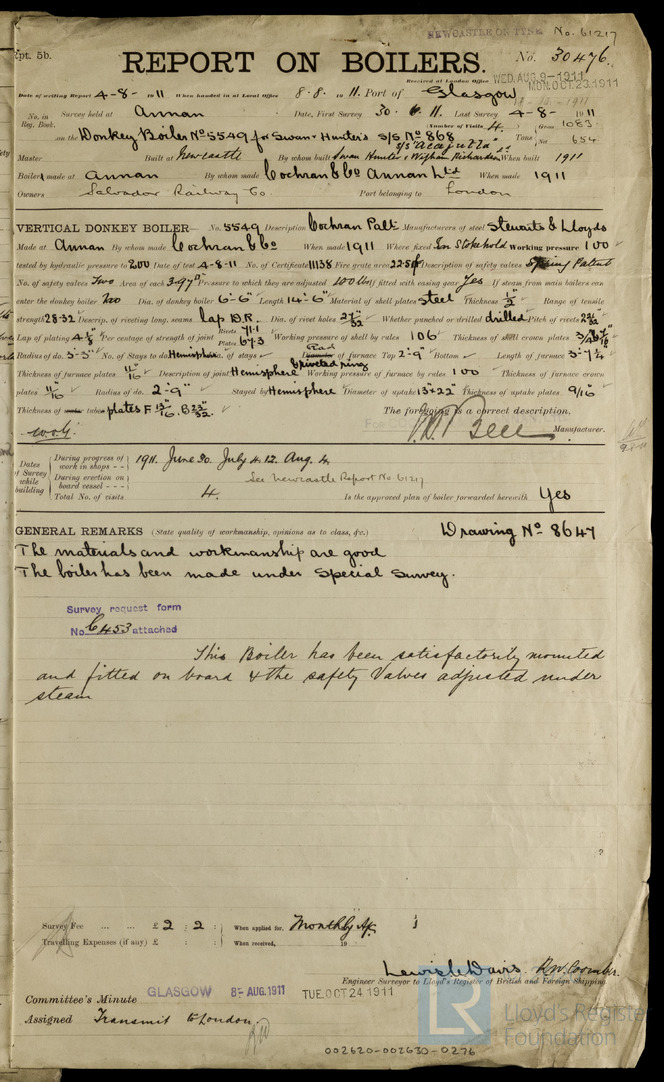 NEWCASTLE ON TYNE No. 61217
Rpt. 5b.
REPORT ON BOILERS.
No. 30476
Received at London Office WED. AUG. 9-1911 MON. OCT 23. 1911
Date of writing Report 4-8-1911 When handed in at Local Office 8.8.1911. Port of Glasgow
No. in Reg. Book. Survey held at Annan Date, First Survey 30.6.11 Last Survey 4-8-1911
Number of Visits 4.
on the Donkey Boiler No 5549 for Swan & Hunter's S/S No 868 Tons Gross 1083 Net 654
S/S "Aracjutla"
Master Built at Newcastle By whom built Swan Hunter & Wigham Richardson Ld When built 1911
Boiler made at Annan By whom made Cochran & Co Annan Ltd When made 1911
Owners Salvador Railway Co. Port belonging to London
VERTICAL DONKEY BOILER— No. 5549 Description Cochran Patt. Manufacturers of steel Stewarts & Lloyds
Made at Annan By whom made Cochran & Co When made 1911 Where fixed In Stokehold Working pressure 100
tested by hydraulic pressure to 200 Date of test 4-8-11 No. of Certificate 11138 Fire grate area 22.5 Description of safety valves Spring Patent
No. of safety valves Two Area of each 3.97 Pressure to which they are adjusted 100 lbs If fitted with easing gear Yes If steam from main boilers can
enter the donkey boiler No Dia. of donkey boiler 6'-6" Length 14'-6" Material of shell plates Steel Thickness 1/2" Range of tensile
strength 28-32 Descrip. of riveting long. seams Lap D.R. Dia. of rivet holes 27/32 Whether punched or drilled drilled Pitch of rivets 2 23/32
Lap of plating 4 1/8 Per centage of strength of joint Rivets 71.1 Plates 67.3 Working pressure of shell by rules 106 Thickness of shell crown plates
Radius of do. 3'-3" No. of Stays to do Hemisphere. of stays Diameter of furnace Top 2'-9" Bottom Length of furnace 3'-7 1/4
Thickness of furnace plates 11/16" Description of joint Hemisphere Working pressure of furnace by rules 100 Thickness of furnace crown
plates 11/16" Radius of do. 2'-9" Stayed by Hemisphere Diameter of uptake 13 x 22 Thickness of uptake plates 9/16"
Thickness of water tubes plates F 13/16. B 23/32.
The foregoing is a correct description,
Manufacturer.
Dates of Survey while building
During progress of work in shops - - 1911. June 30. July 4. 12. Aug. 4
During erection on board vessel - - - See Newcastle Report No 61217
Total No. of visits 4. Is the approved plan of boiler forwarded herewith Yes
GENERAL REMARKS (State quality of workmanship, opinions as to class, &c.) Drawing No 8647
The materials and workmanship are good
The boiler has been made under Special Survey.
Survey request form
No. 6453 attached
This Boiler has been satisfactorily mounted
and fitted on board & the safety Valves adjusted under
steam
Survey Fee ... ... £ 2 : 2 : When applied for, Monthly A/c
Travelling Expenses (if any) £ : : When received, 19
Lewis C Davis. R.W. Coomber.
Engineer Surveyor to Lloyd's Register of British and Foreign Shipping.
Committee's Minute GLASGOW 8-AUG.1911 TUE. OCT 24. 1911
Assigned Transmit to London.
LR Lloyd's Register Foundation
002620-002630-0276